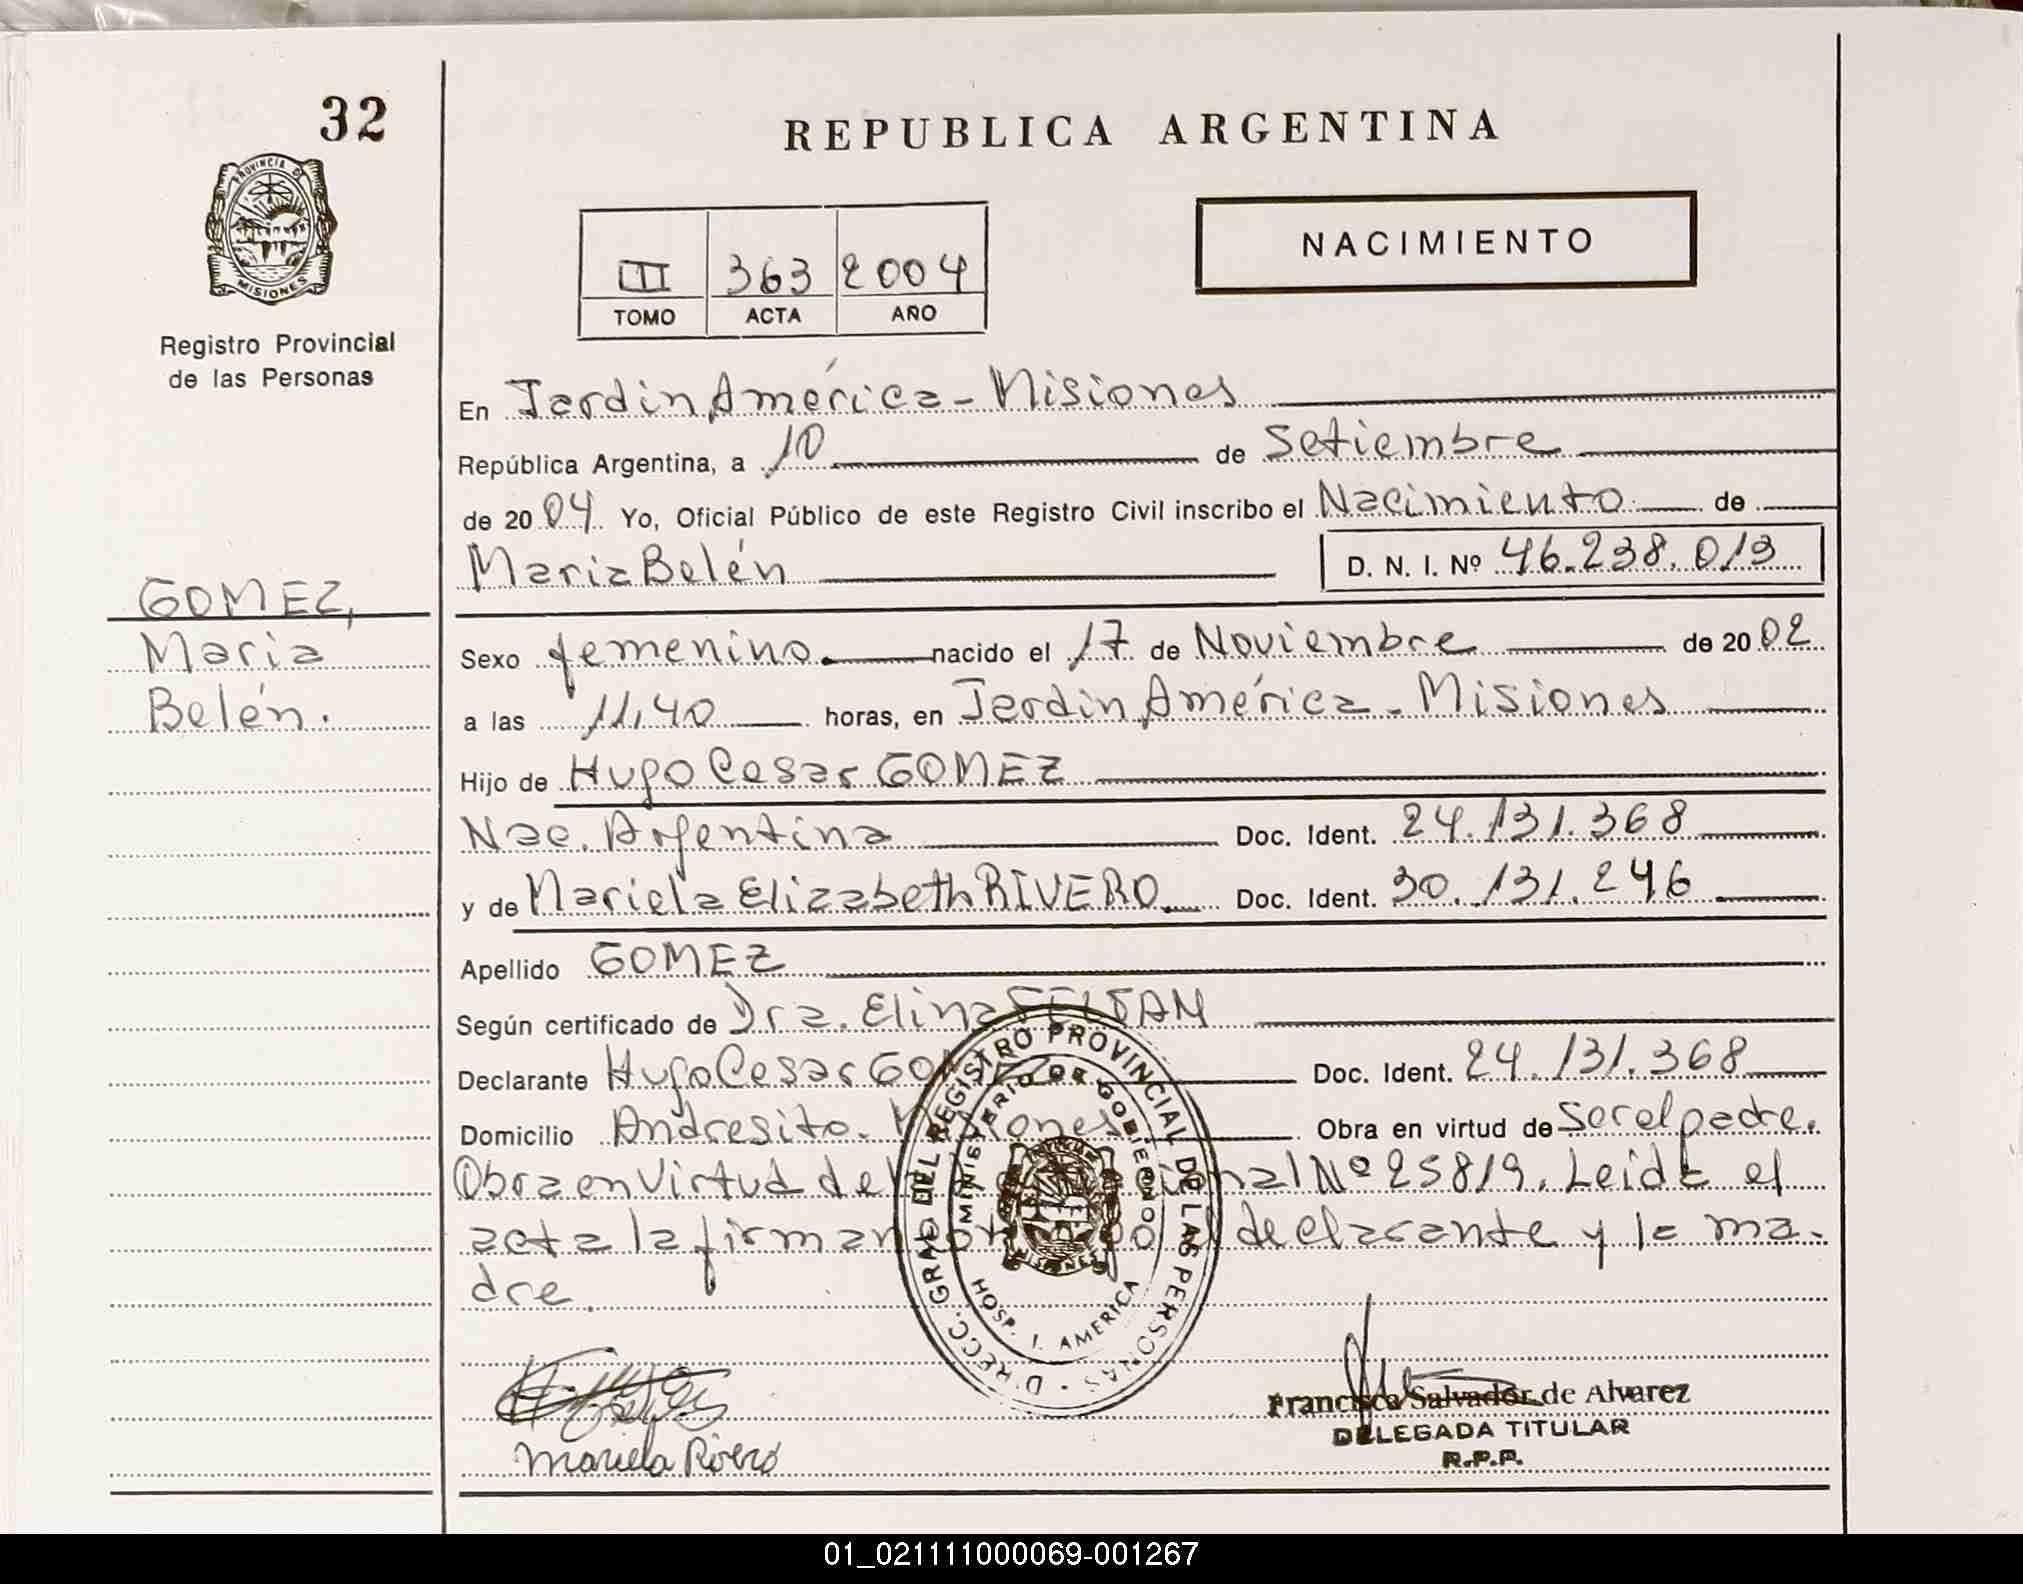 32
REPUBLICA ARGENTINA
PROVINCIA D
MISIONES
Registro Provincial
de las Personas
III 363 2004
TOMO ACTA AÑO
NACIMIENTO
En Jardin América - Misiones
República Argentina, a 10 de Setiembre
de 2004. Yo, Oficial Público de este Registro Civil inscribo el Nacimiento de
Maria Belén D. N. I. Nº 46.238.013
GOMEZ,
Maria
Belén.
Sexo femenino. nacido el 17 de Noviembre de 2002
a las 11,40 horas, en Jardin América - Misiones
Hijo de Hugo Cesar GOMEZ
Nac. Argentina Doc. Ident. 24.131.368
y de Mariela Elizabeth RIVERO Doc. Ident. 30.131.246
Apellido GOMEZ
Según certificado de Dra. Elina
Declarante Hugo Cesar GOMEZ Doc. Ident. 24.131.368
Domicilio Andresito. Misiones Obra en virtud de Ser el padre.
Obra en Virtud del Nº 25819. Leida el
acta la firman declarante y la ma-
dre.
DIRECC. GRAL. DEL REGISTRO PROVINCIAL DE LAS PERSONAS
MINISTERIO DE GOBIERNO
MISIONES
HOSP. J. AMERICA
Mariela Rivero
Francisca Salvador de Alvarez
DELEGADA TITULAR
R.P.P.
01_021111000069-001267